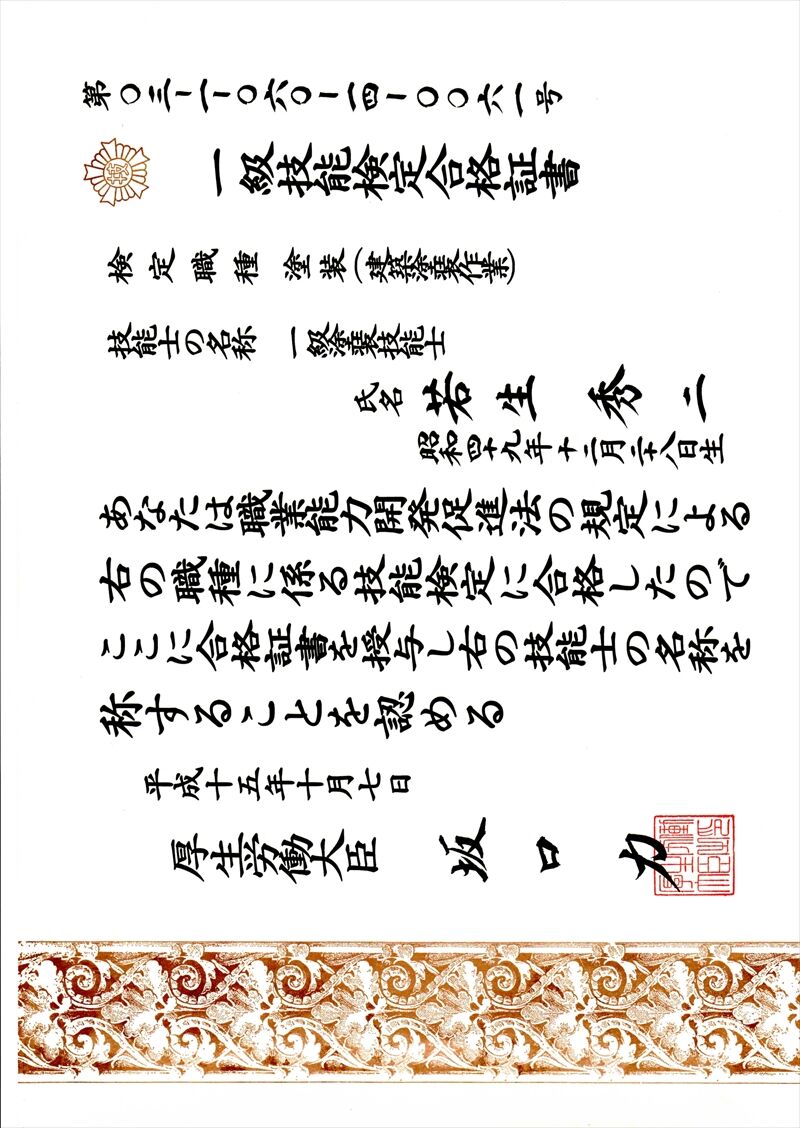 第〇三ー一ー〇六〇ー一四ー〇〇六一号
一級技能検定合格証書
検定職種 塗装(建築塗装作業)
技能士の名称 一級塗装技能士
氏名 若生 秀二
昭和四十九年十二月二十八日生
あなたは職業能力開発促進法の規定による
右の職種に係る技能検定に合格したので
ここに合格証書を授与し右の技能士の名称を
称することを認める
平成十五年十月七日
厚生労働大臣 坂口力